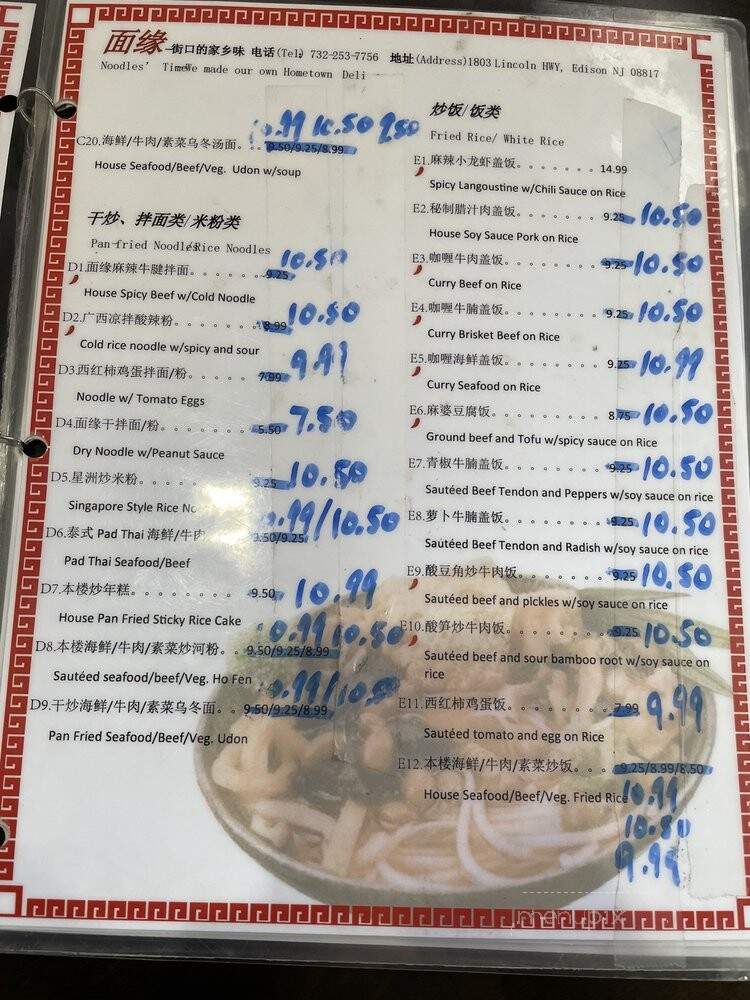 面缘-街口的家乡味 电话(Tel) 732-253-7756 地址(Address)1803 Lincoln HWY, Edison NJ 08817
Noodles' TimeWe made our own Hometown Deli
10.50
C20.海鲜/牛肉/素菜乌冬汤面...9.50/9.25/8.99
House Seafood/Beef/Veg. Udon w/soup
干炒、拌面类/米粉类
Pan-fried Noodles/Rice Noodles
D1.面缘麻辣牛腱拌面。。。。。9.25 10.50
House Spicy Beef w/Cold Noodle
D2.广西凉拌酸辣粉。。。。。。8.99 10.50
Cold rice noodle w/spicy and sour
D3.西红柿鸡蛋拌面/粉。。。。7.99
Noodle w/ Tomato Eggs
D4.面缘干拌面/粉。。。。。。5.50 7.50
Dry Noodle w/Peanut Sauce
D5.星洲炒米粉。。。。。。。。9.25 10.50
Singapore Style Rice No
D6.泰式 Pad Thai 海鲜/牛肉 9.50/9.25 /10.50
Pad Thai Seafood/Beef
D7.本楼炒年糕。。。。。。。。9.50 10.99
House Pan Fried Sticky Rice Cake
10.50
D8.本楼海鲜/牛肉/素菜炒河粉。。9.50/9.25/8.99
Sautéed seafood/beef/Veg. Ho Fen
/10.50
D9.干炒海鲜/牛肉/素菜乌冬面。。9.50/9.25/8.99
Pan Fried Seafood/Beef/Veg. Udon
炒饭/饭类
Fried Rice/ White Rice
E1.麻辣小龙虾盖饭。。。。。。14.99
Spicy Langoustine w/Chili Sauce on Rice
E2.秘制腊汁肉盖饭。。。。。。9.25 10.50
House Soy Sauce Pork on Rice
E3.咖喱牛肉盖饭。。。。。。。9.25 10.50
Curry Beef on Rice
E4.咖喱牛腩盖饭。。。。。。。9.25 10.50
Curry Brisket Beef on Rice
E5.咖喱海鲜盖饭。。。。。。。9.25 10.99
Curry Seafood on Rice
E6.麻婆豆腐饭。。。。。。。。8.75 10.50
Ground beef and Tofu w/spicy sauce on Rice
E7.青椒牛腩盖饭。。。。。。。9.25 10.50
Sautéed Beef Tendon and Peppers w/soy sauce on rice
E8.萝卜牛腩盖饭。。。。。。。9.25 10.50
Sautéed Beef Tendon and Radish w/soy sauce on rice
E9.酸豆角炒牛肉饭。。。。。。9.25 10.50
Sautéed beef and pickles w/soy sauce on rice
E10.酸笋炒牛肉饭。。。。。。。9.25 10.50
Sautéed beef and sour bamboo root w/soy sauce on
rice
E11.西红柿鸡蛋饭。。。。。。。7.99 9.99
Sautéed tomato and egg on Rice
E12.本楼海鲜/牛肉/素菜炒饭。。。9.25/8.99/8.50
House Seafood/Beef/Veg. Fried Rice 10.99
10.50
9.99
menupix